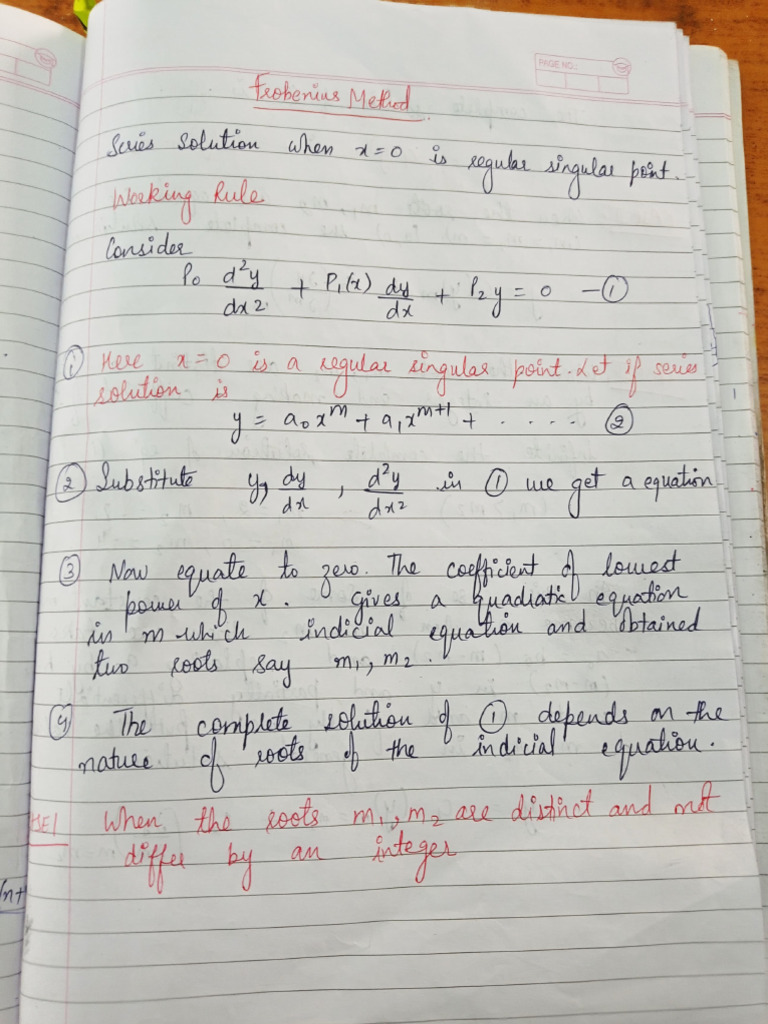 PAGE NO.:
Frobenius Method
Series Solution when x=0 is regular singular point.
Working Rule
Consider
P₀ d²y/dx² + P₁(x) dy/dx + P₂y = 0 — ①
① Here x=0 is a regular singular point. Let if series
solution is
y = a₀xᵐ + a₁xᵐ⁺¹ + ..... ②
② Substitute y, dy/dx, d²y/dx² in ① we get a equation
③ Now equate to zero. The coefficient of lowest
power of x. Gives a quadratic equation
in m which indicial equation and obtained
two roots say m₁, m₂.
④ The complete solution of ① depends on the
nature of roots of the indicial equation.
When the roots m₁, m₂ are distinct and not
differ by an integer